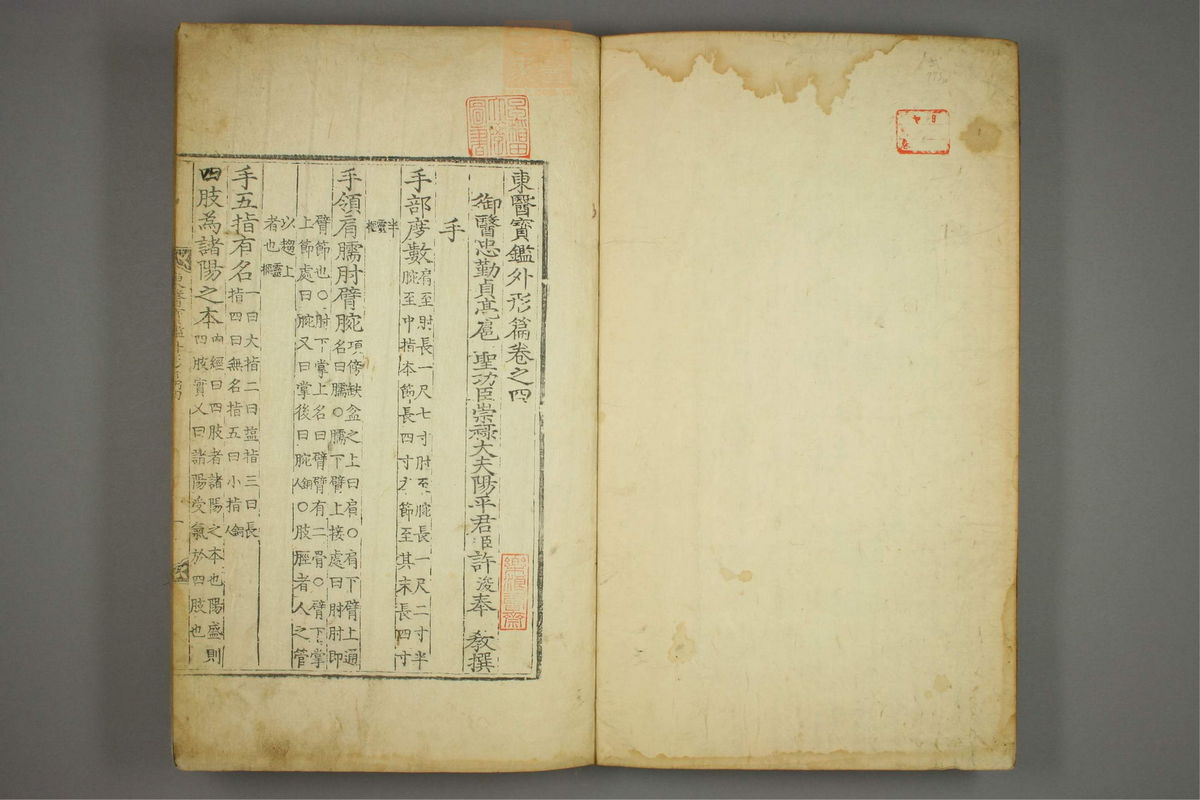 東醫寶鑑外形篇卷之四
御醫忠勤貞亮扈 聖功臣崇祿大夫陽平君臣許浚奉 敎撰
手
手部度數 肩至肘長一尺七寸肘至腕長一尺二寸半
腕至中指本節長四寸本節至其末長四寸
半靈樞
手領肩臑肘臂腕 項傍缺盆之上曰肩○肩下臂上通
名曰臑○臑下臂上接處曰肘肘即
臂節也○肘下掌上名曰臂臂有二骨○臂下掌
上節處曰腕又曰掌後曰腕銅人○肢脛者人之管
以趨上
者也靈樞
手五指有名 一曰大指二曰鹽指三曰長
指四曰無名指五曰小指銅人
四肢爲諸陽之本 內經曰四肢者諸陽之本也陽盛則
四肢實又曰諸陽受氣於四肢也